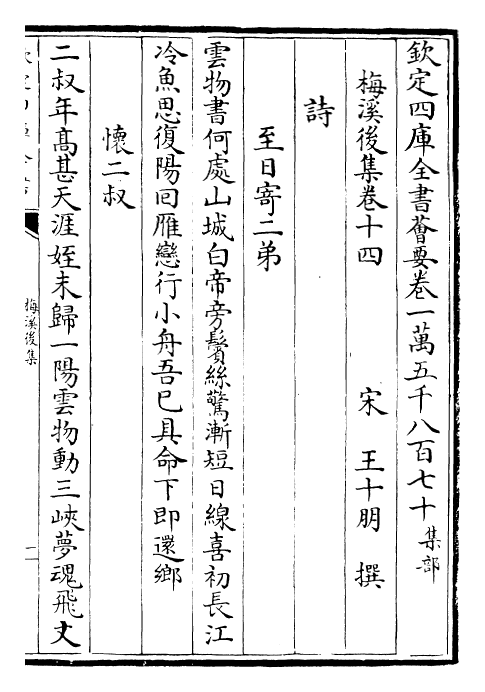 欽定四庫全書薈要卷一萬五千八百七十集部
梅溪後集卷十四 宋 王十朋 撰
詩
至日寄二弟
雲物書何處山城白帝旁鬢絲驚漸短日線喜初長江
冷魚思復陽回雁戀行小舟吾已具命下即還鄉
懷二叔
二叔年髙甚天涯姪未歸一陽雲物動三峽夢魂飛丈
梅溪後集